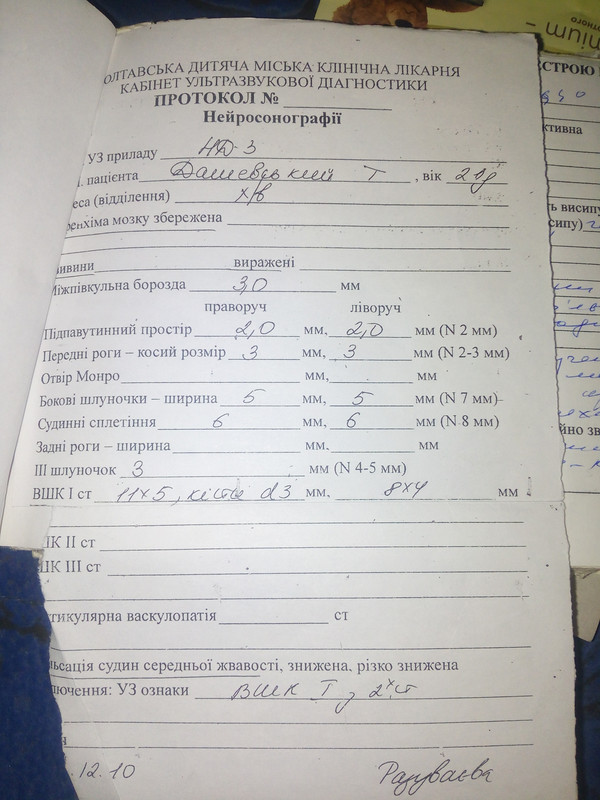 ОЛТАВСЬКА ДИТЯЧА МІСЬКА КЛІНІЧНА ЛІКАРНЯ
КАБІНЕТ УЛЬТРАЗВУКОВОЇ ДІАГНОСТИКИ
ПРОТОКОЛ №
Нейросонографії
УЗ приладу НД-3
пацієнта Т , вік
еса (відділення) х/в
енхіма мозку збережена
ивини виражені
Міжпівкульна борозда 3,0 мм
праворуч ліворуч
Підпавутинний простір 2,0 мм, 2,0 мм (N 2 мм)
Передні роги – косий розмір 3 мм, 3 мм (N 2-3 мм)
Отвір Монро мм, мм
Бокові шлуночки – ширина 5 мм, 5 мм (N 7 мм)
Судинні сплетіння 6 мм, 6 мм (N 8 мм)
Задні роги – ширина мм, мм
III шлуночок 3 мм (N 4-5 мм)
ВШК I ст 11х5, кісти d3 мм, 8х4 мм
ШК II ст
ШК III ст
тикулярна васкулопатія ст
льсація судин середньої жвавості, знижена, різко знижена
лючення: УЗ ознаки ВШК I з 2х ст
.12.10 Разуваєва
СТРОЮ
ктивна
ь висипу
сипу)
йно зв
nium –